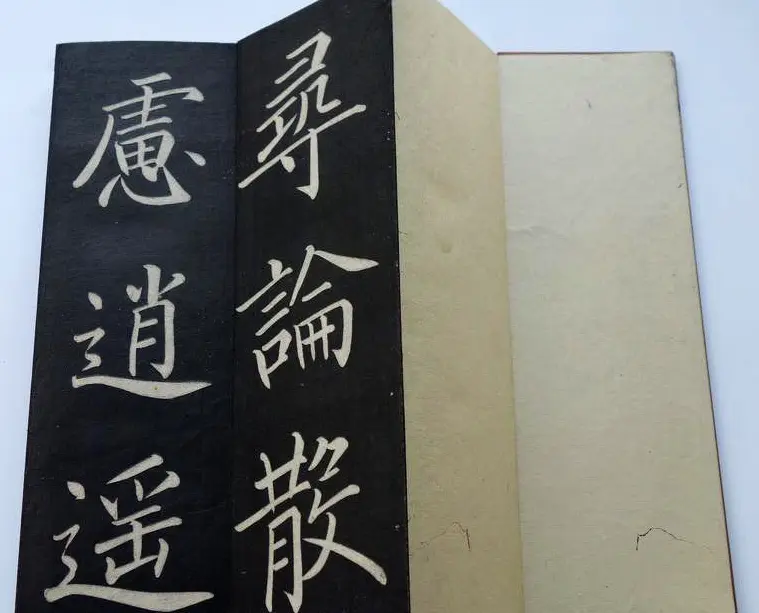 尋論散
慮逍遥